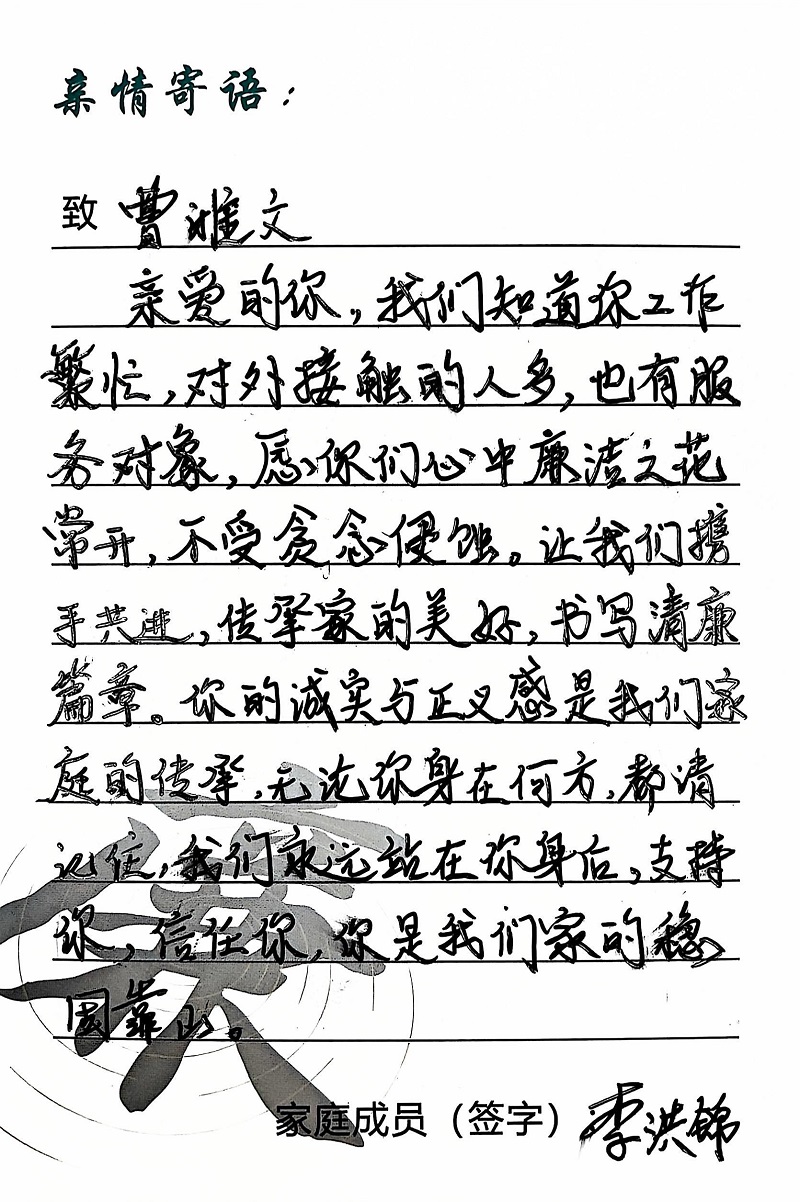 亲情寄语：
致 曹雅文
亲爱的你，我们知道你工作
繁忙，对外接触的人多，也有服
务对象，愿你们心中廉洁之花
常开，不受贪念侵蚀。让我们携
手共进，传承家的美好，书写清廉
篇章。你的诚实与正义感是我们家
庭的传承，无论你身在何方，都请
记住，我们永远站在你身后，支持
你，信任你，你是我们家的稳
固靠山。
家庭成员（签字）李洪锦